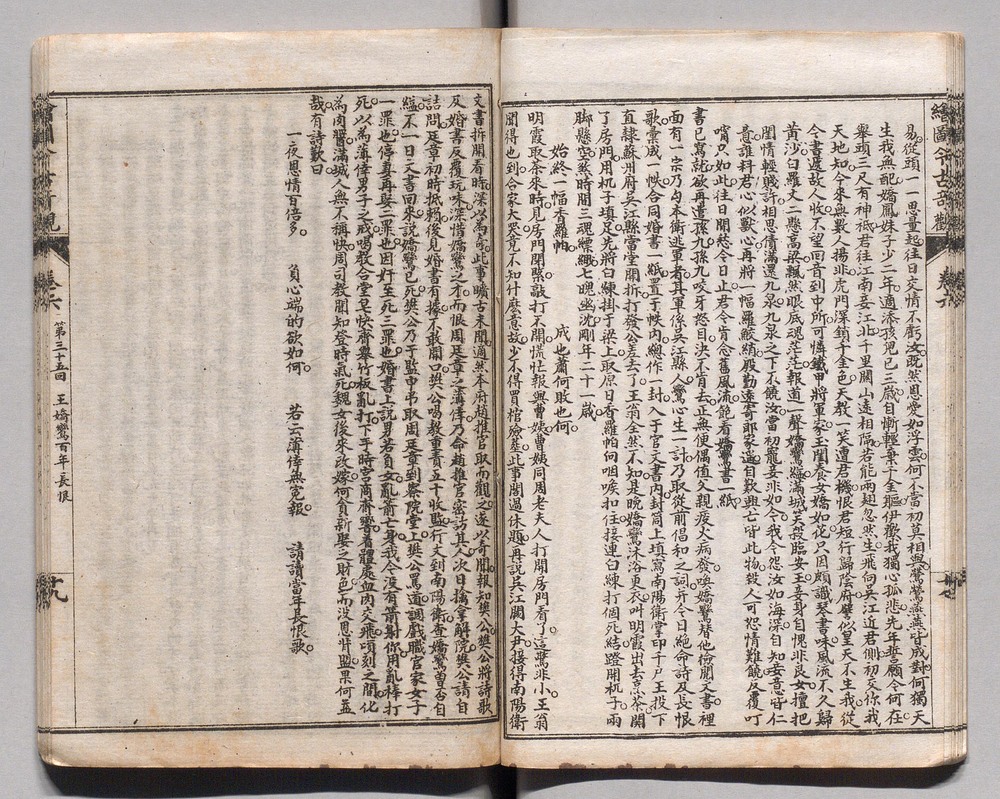 繪圖今古奇觀
卷六
易從頭一一思量起往日交情不虧汝既然恩愛如浮雲何不當初莫相與鶯鶯燕燕皆成對何獨天
生我無配嬌鳳妹子少二年適添孩兒已三歲自慚輕棄千金軀伊歡我獨心孤悲先年誓願今何在
舉頭三尺有神祇君往江南妾江北千里關山遠相隔若能兩翅忽然生飛向吳江近君側初交你我
天地知今來無數人揚非虎門深鎖千金色天教一笑遭君機恨君短行歸陰府譬似皇天不生我從
今書遞故人收不望回音到中所可憐鐵甲將軍家玉閨養女嬌如花只因頗識琴書味風流不久歸
黃沙白羅丈二懸高梁飄然眼底魂茫茫報道一聲嬌鸞縊滿城笑殺臨安王妾身自愧非良女擅把
閨情輕賤許相思債滿還九泉九泉之下不饒汝當初寵妾非如今我今怨汝如海深自知妾意皆仁
意誰料君心似獸心再將一幅羅鮫綃殷勤遠寄郎家遙自歎興亡皆此物殺人可恕情難饒反覆叮
嚀只如此往日閒愁今日止君今肯念舊風流飽看嬌鸞書一紙
書已寫就欲再遣孫九孫九咬牙怒目決不肯去正無便偶值父親痰火病發喚嬌鸞替他檢閱文書裡
面有一宗乃勾本衛逃軍者其軍係吳江縣人鸞心生一計乃取從前倡和之詞并今日絕命詩及長恨
歌彙成一帙合同婚書一紙置于帙內總作一封入于官文書內封筒上填寫南陽衛掌印千戶王投下
直隸蘇州府吳江縣當堂開拆打發公差去了王翁全然不知是晚嬌鸞沐浴更衣叫明霞出去烹茶關
了房門用杌子填足先將白練掛于梁上取原日香羅帕向咽喉扣住接連白練打個死結蹬開杌子兩
脚懸空煞時間三魂縹緲七魄幽沈剛年二十一歲
始終一幅香羅帕　成也蕭何敗也何
明霞取茶來時見房門閉緊敲打不開慌忙報與曹姨曹姨同周老夫人打開房門看了這驚非小王翁
聞得也到合家大哭竟不知什麼意故少不得買棺殮葬此事閣過休題再說吳江闕大尹接得南陽衛
文書拆開看時深以為奇此事曠古未聞適然本府趙推官取而觀之遂以奇聞報知樊公樊公將詩歌
及婚書反覆玩味深惜嬌鸞之才而恨周廷章之薄倖乃命趙推官密訪其人次日擒拿解院樊公請自
詰問廷章初時抵賴後見婚書有據不敢開口樊公喝教重責五十收監行文到南陽衛查嬌鸞曾否自
縊不一日文書回來說嬌鸞已死樊公乃于監中吊取周廷章到察院堂上樊公罵道調戲職官家女子
一罪也停妻再娶二罪也因奸至死三罪也婚書上說男若負女亂箭亡身我今沒有箭射你用亂棒打
死以為薄倖男子之戒喝教合堂皂快齊舉竹板亂打下手時宮商齊響着體處血肉交飛頃刻之間化
為肉醬滿城人無不稱快周司教聞知登時氣死魏女後來改嫁何負新娶之財色而沒恩背盟果何益
哉有詩歎曰
一夜恩情百倍多　負心端的欲如何　若云薄倖無冤報　請讀當年長恨歌
卷六
第三十五回　王嬌鸞百年長恨
廿九